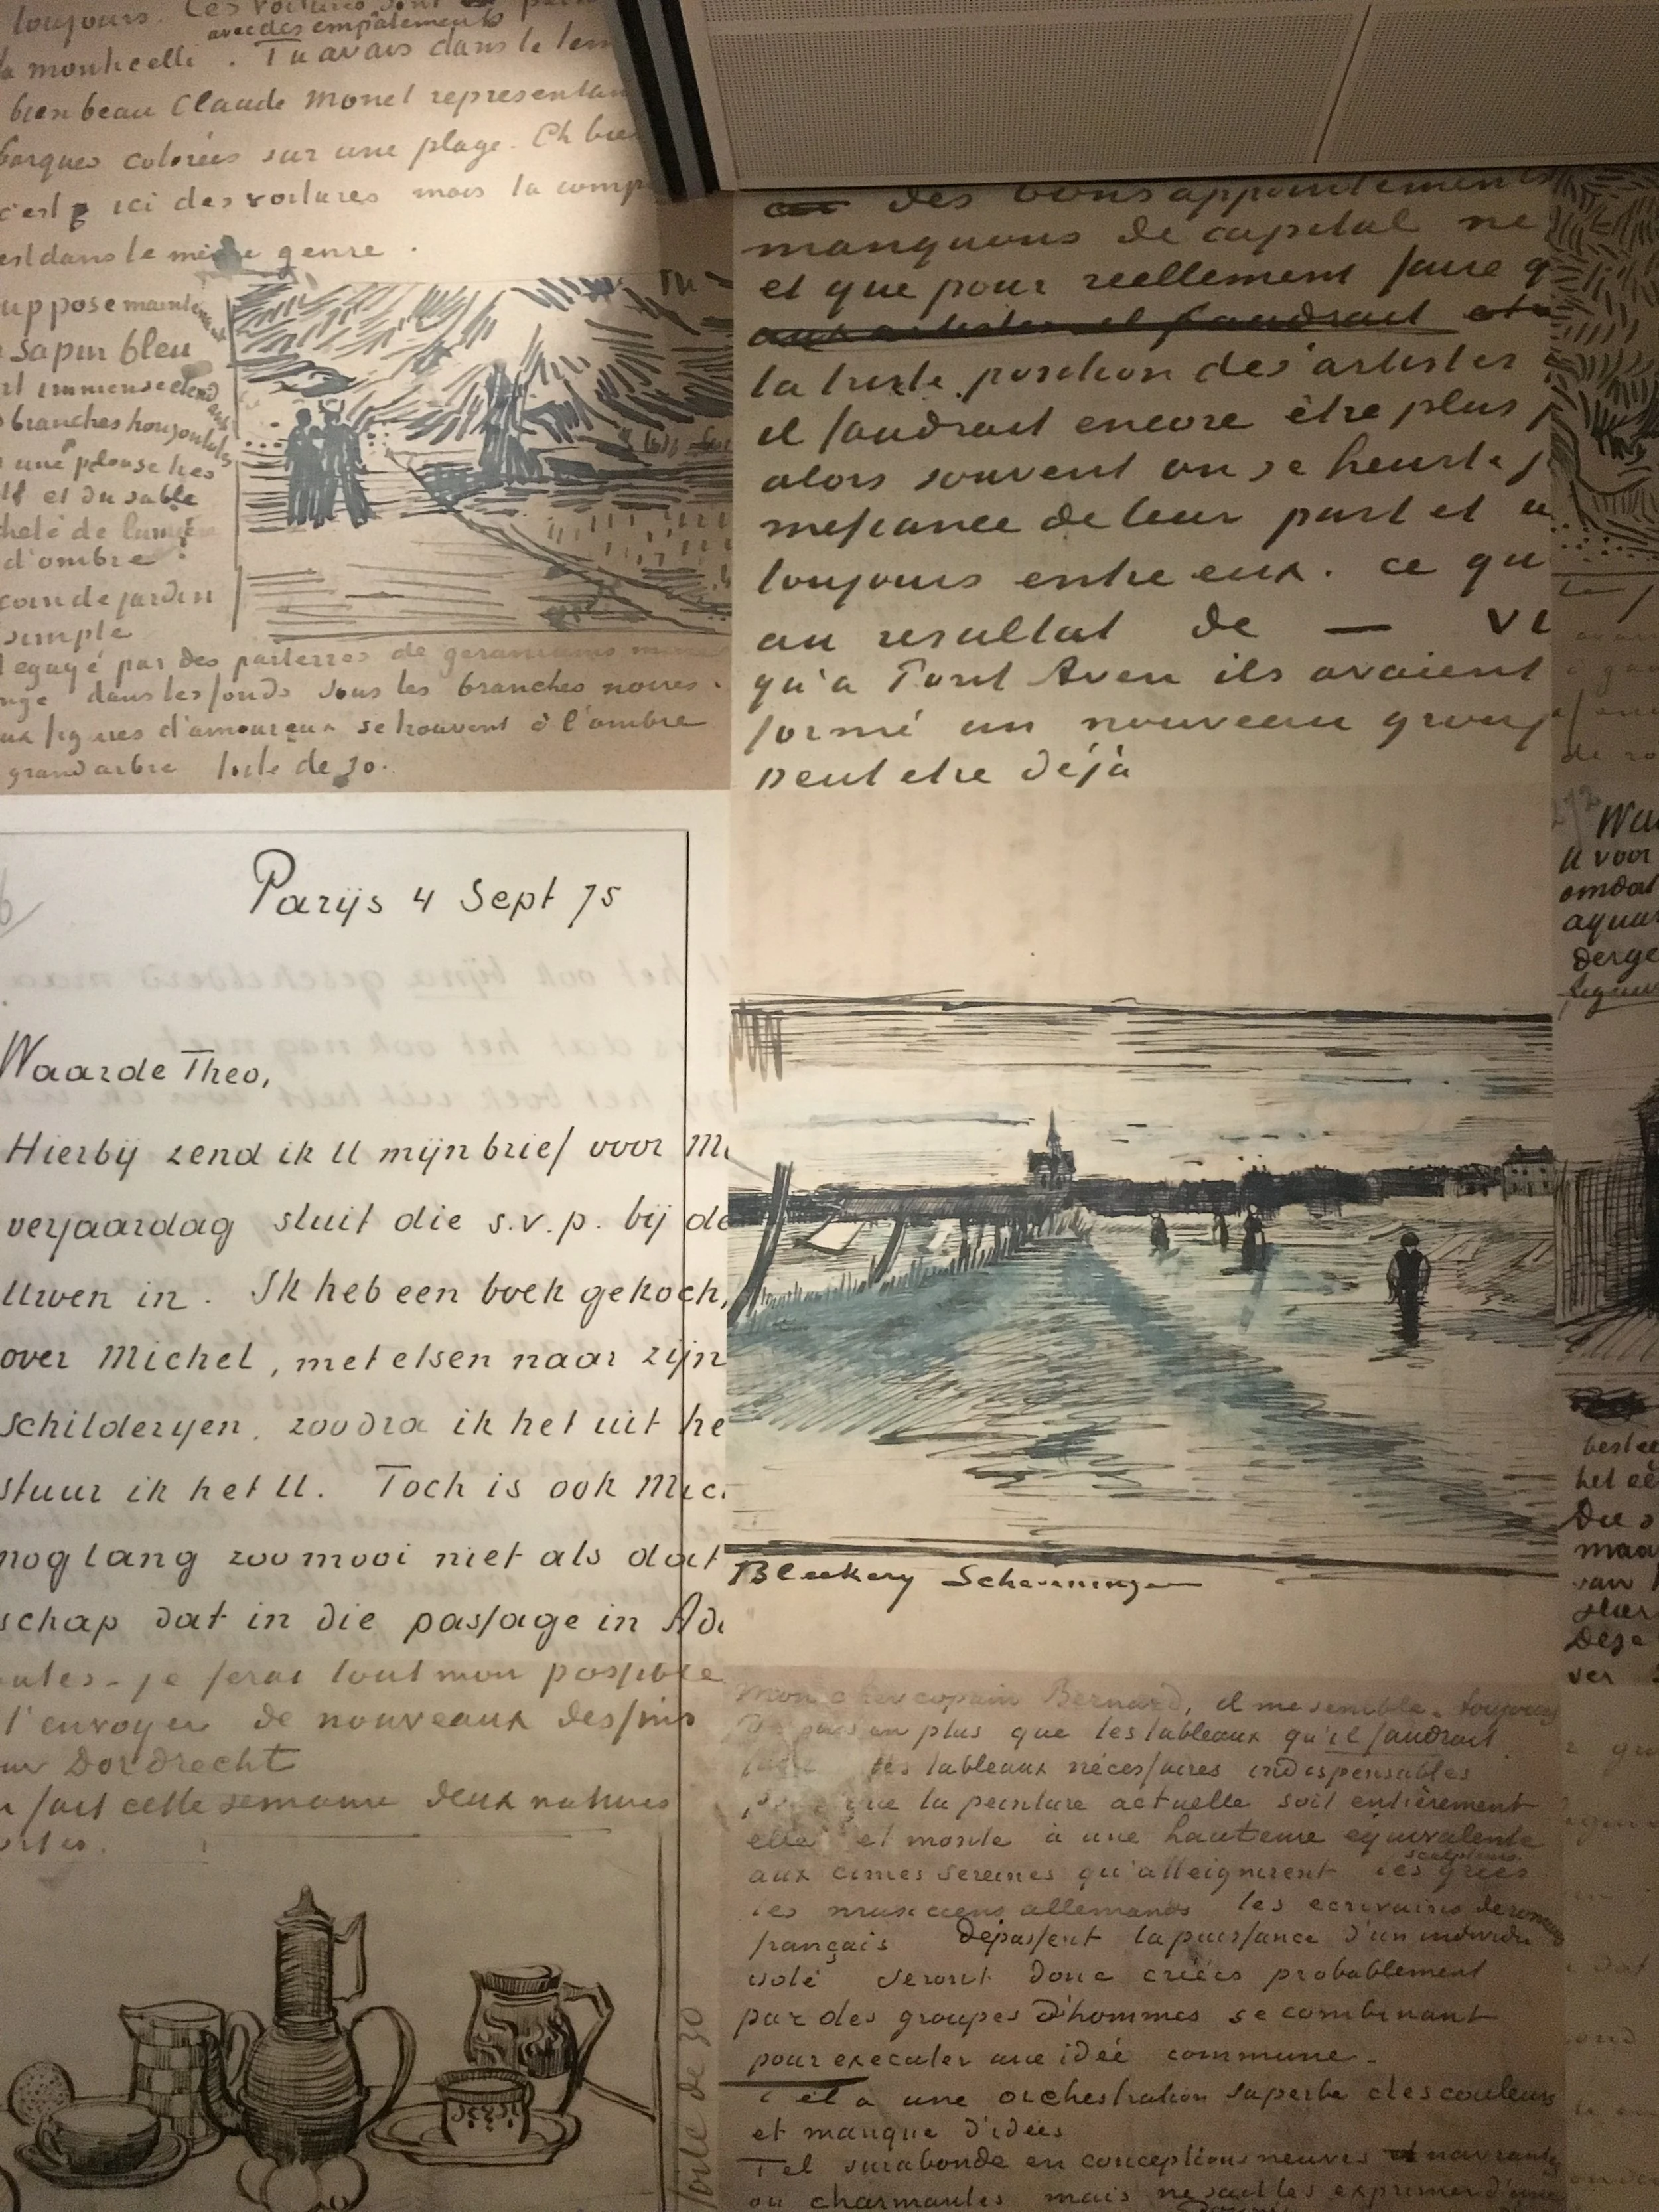 toujours. Ces voitures sont
avec des empâtements
monticelli. Tu avais dans le tem
bien beau Claude Monet representan
barques colorées sur une plage. Eh bien
c'est ici des voitures mais la comp
est dans le même genre.
suppose mainten
sapin bleu
immense
branches horizontales
une pelouse
et du sable
d'ombre
coin de jardin
simple
egayé par des parterres de geraniums
dans les fonds sous les branches noires.
figures d'amoureux se trouvent à l'ombre
grand arbre toile de 30.
des bons appointements
manquons de capital ne
et que pour reellement faire q
aux artistes il faudrait
la triste position des artistes
il faudrait encore être plus
alors souvent on se heurte
mefiance de leur part et
toujours entre eux. ce qu
au resultat de —
qu'a Pont Aven ils avaient
formé un nouveau group
peut etre déjà
Parijs 4 Sept 75
Waarde Theo,
Hierbij zend ik U mijn brief voor
verjaardag sluit die s.v.p. bij de
Uwen in. Ik heb een boek gekoch
over Michel, met etsen naar zijn
schilderyen. zoodra ik het uit he
stuur ik het U. Toch is ook Mic
nog lang zoo mooi niet als dat
schap dat in die passage in Ad
je ferai tout mon possible
l'envoyer de nouveaux dessins
Dordrecht
fait cette semaine deux natures
toile de 30
Bleekery Scheveningen
Mon cher copain Bernard, il me semble toujours
de plus en plus que les tableaux qu'il faudrait
les tableaux nécessaires indispensables
que la peinture actuelle soit entièrement
elle et monte à une hauteur equivalente
sculpteurs
aux cimes sereines qu'atteignirent les grecs
les musiciens allemands les ecrivains de romans
français depassent la puissance d'un individu
isolé seront donc créées probablement
par des groupes d'hommes se combinant
pour executer une idée commune.
une orchestration superbe des couleurs
et manque d'idées
Tel surabonde en conceptions neuves navrantes
ou charmantes mais ne sait les exprimer d'une
Waa
U voor
omdat
aquar
derge
figuur
het eë
maar
van
Deze
ver